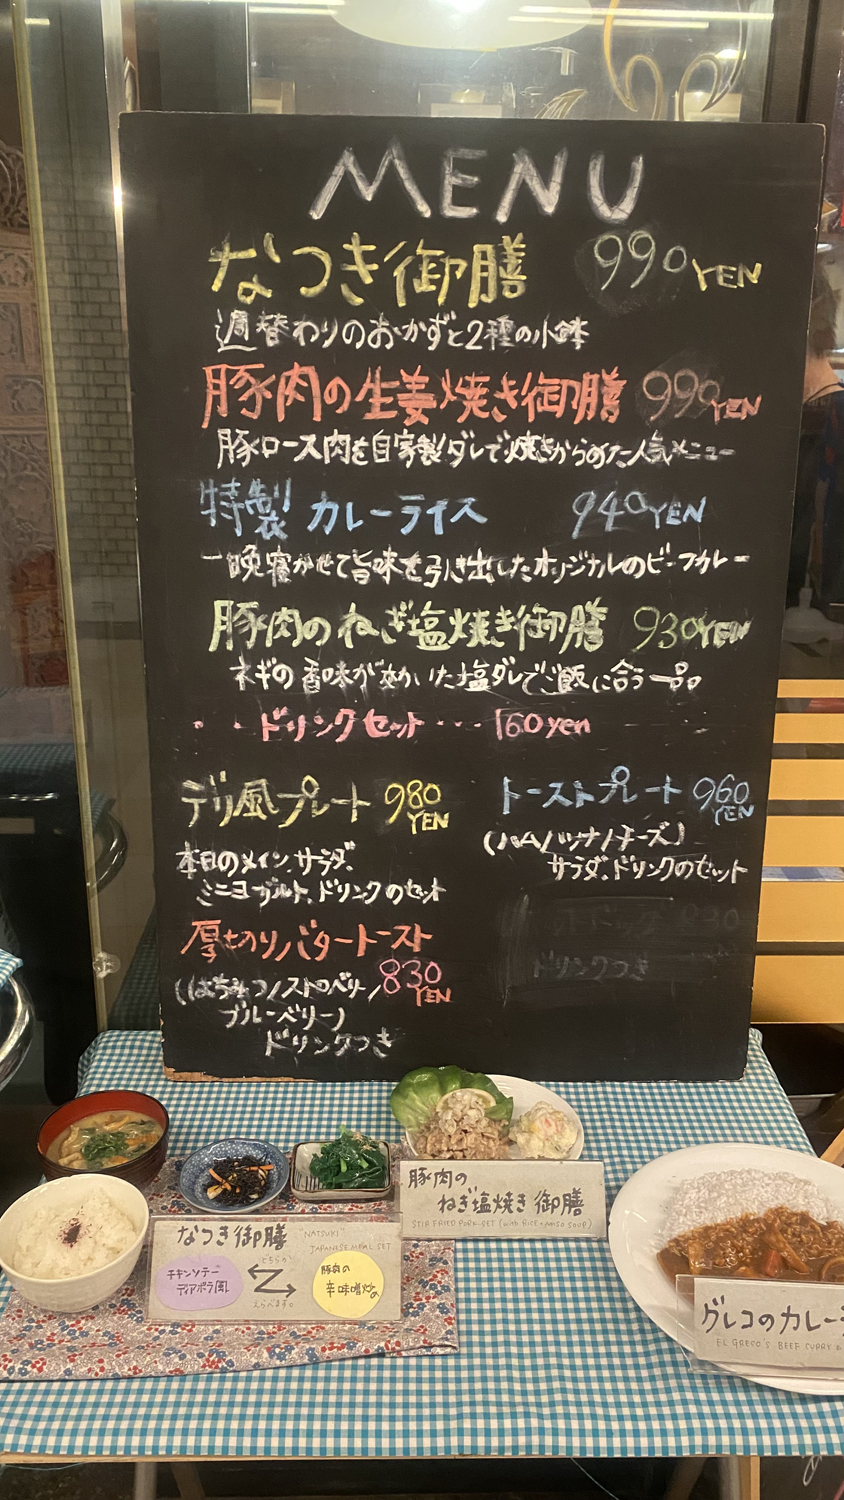 MENU
なつき御膳 990 YEN
週替わりのおかずと2種の小鉢
豚肉の生姜焼き御膳 990 YEN
豚ロース肉を自家製ダレで焼きからめた人気メニュー
特製 カレーライス 940 YEN
一晩寝かせて旨味を引き出したオリジナルのビーフカレー
豚肉のねぎ塩焼き御膳 930 YEN
ネギの香味が効いた塩ダレでご飯に合う一品
・・ドリンクセット・・・160 yen
デリ風プレート 980 YEN
本日のメイン、サラダ、
ミニヨーグルト、ドリンクのセット
厚切りバタートースト
830 YEN
(はちみつ/ストロベリー/
ブルーベリー)
ドリンクつき
トーストプレート 960 YEN
(ハム/ツナ/チーズ)
サラダ、ドリンクのセット
ドリンクつき
豚肉の
ねぎ塩焼き御膳
STIR FRIED PORK SET (with RICE + MISO SOUP)
なつき御膳 "NATSUKI"
JAPANESE MEAL SET
チキンソテー
ディアボラ風
どちらか
えらべます。
豚肉の
辛味噌炒め
グレコのカレー
EL GRECO'S BEEF CURRY &